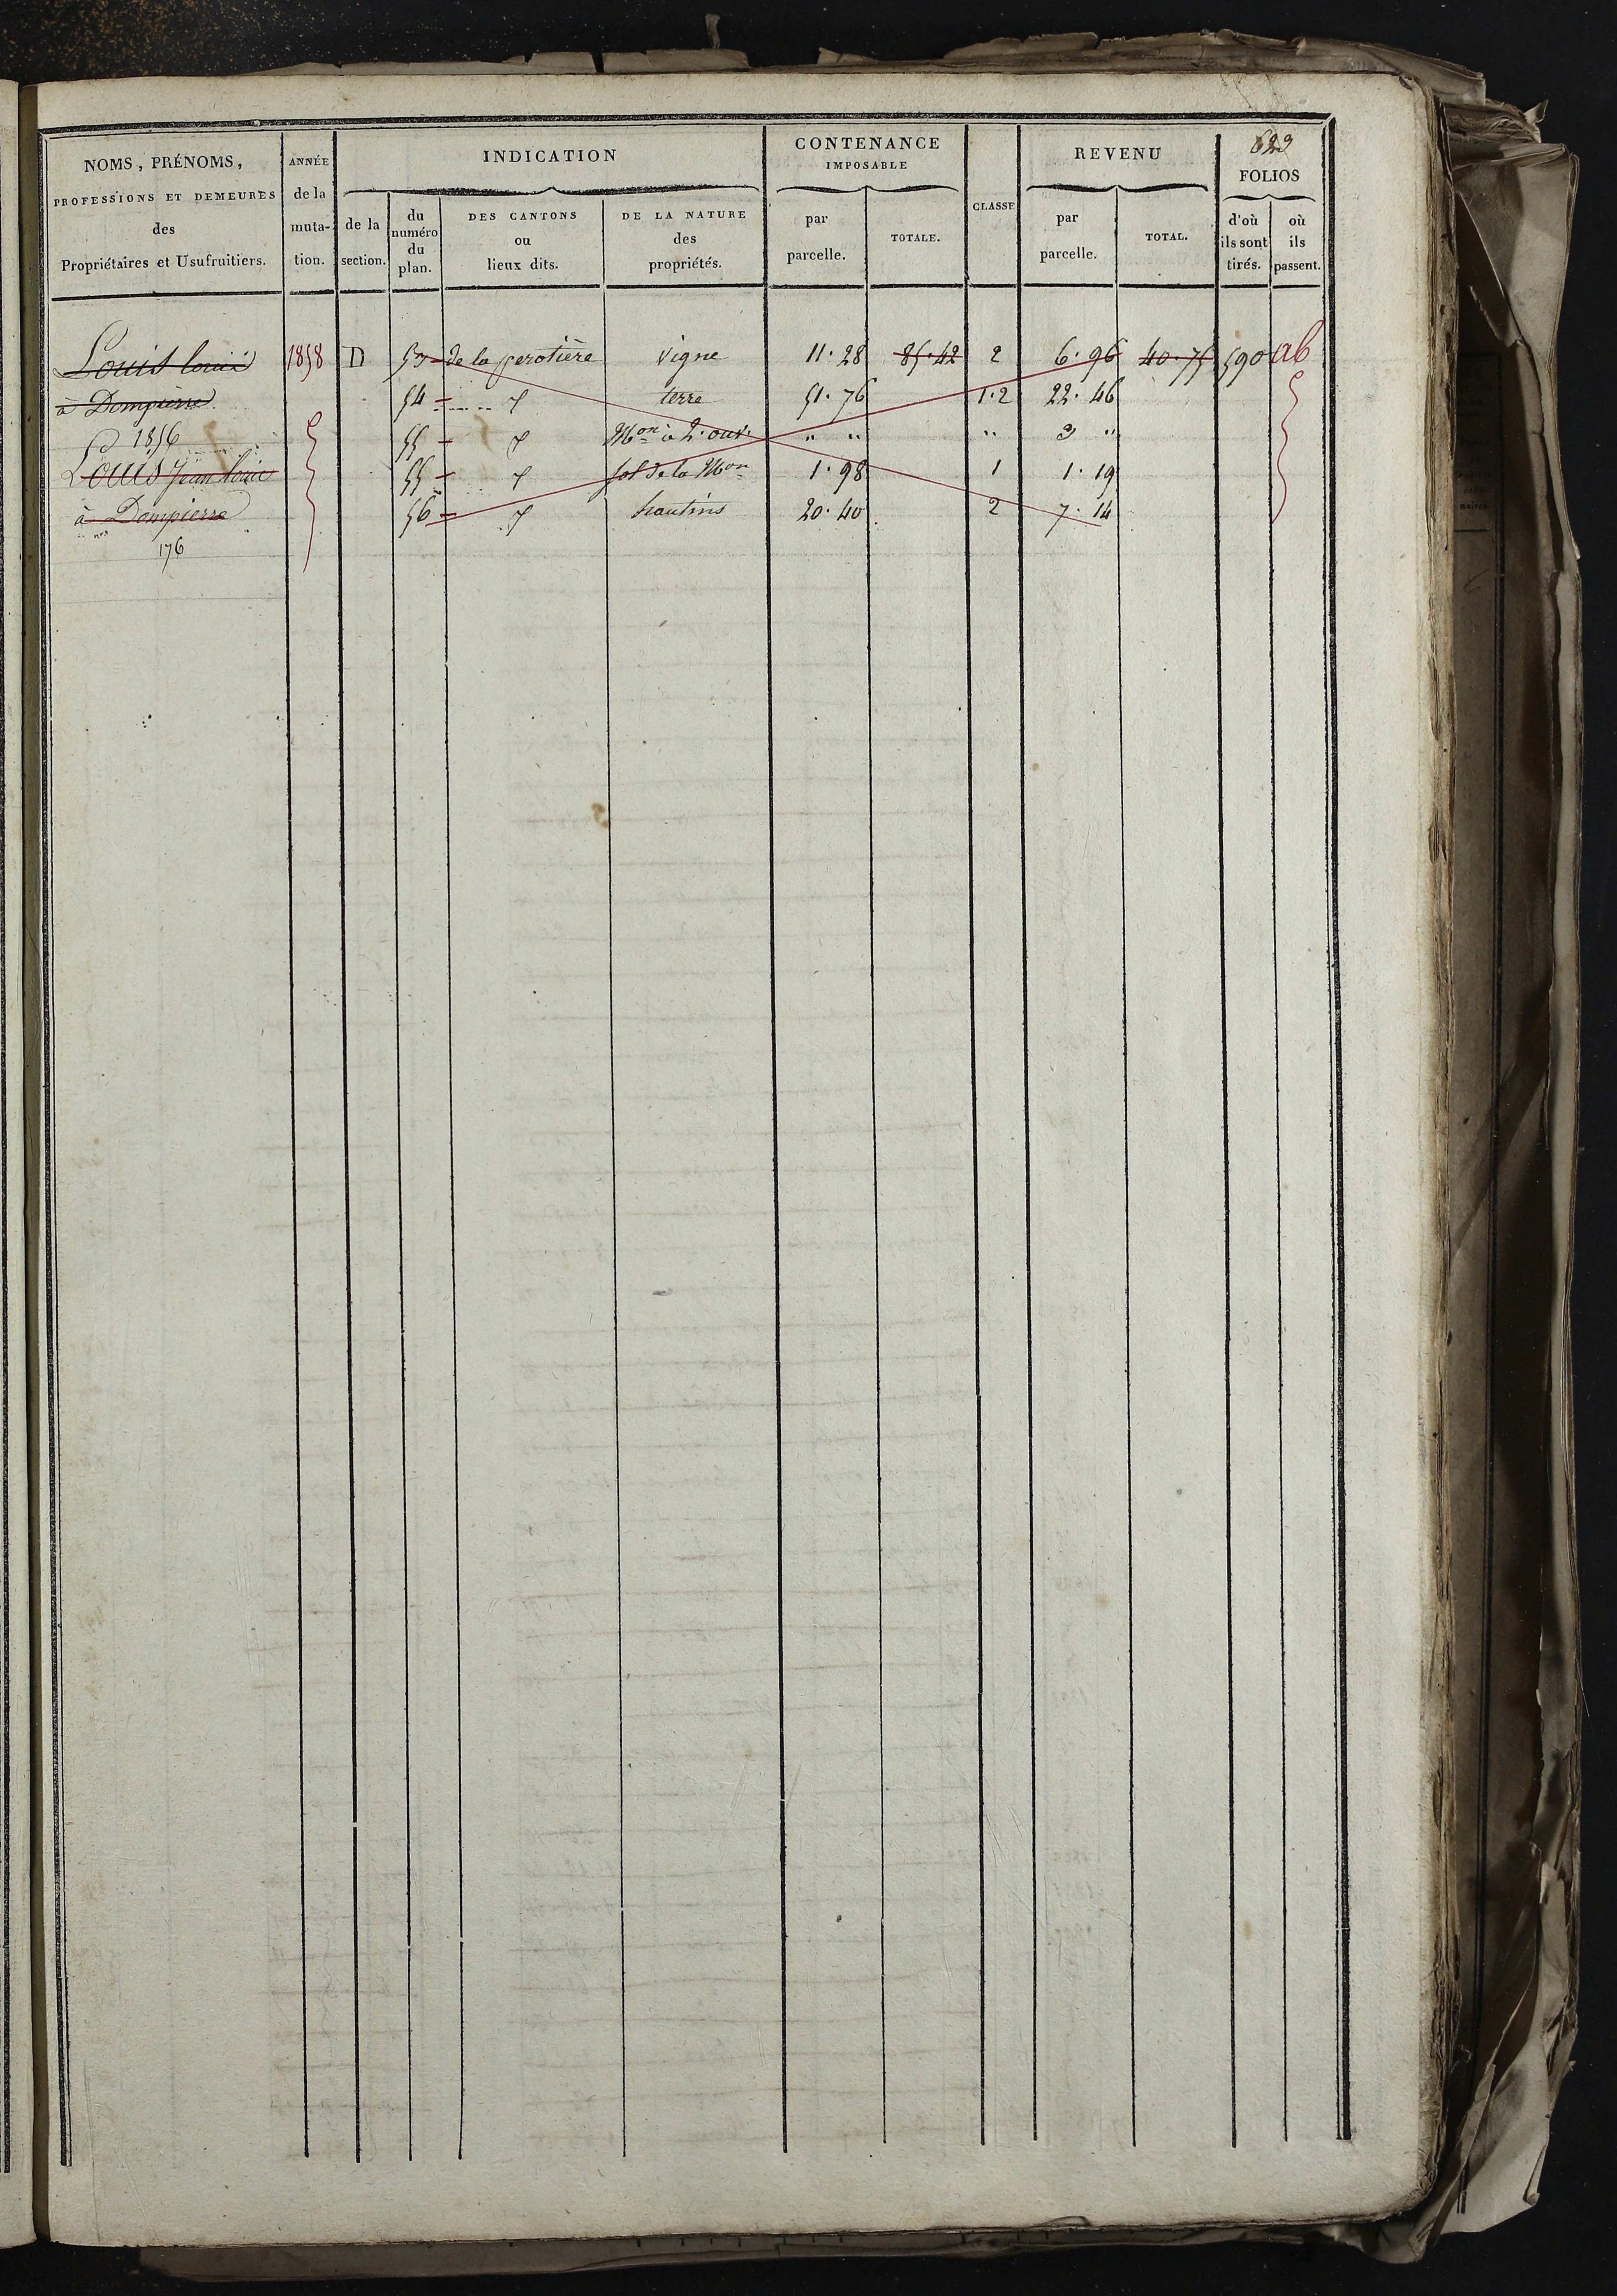 623
NOMS, PRÉNOMS,
PROFESSIONS ET DEMEURES
des
Propriétaires et Usufruitiers.
ANNÉE
de la
muta-
tion.
INDICATION
de la
section.
du
numéro
du
plan.
DES CANTONS
ou
lieux dits.
DE LA NATURE
des
propriétés.
CONTENANCE
IMPOSABLE
par
parcelle.
TOTALE.
CLASSE
REVENU
par
parcelle.
TOTAL.
FOLIOS
d'où
ils sont
tirés.
où
ils
passent.
Louis louis 1858 D 53 de la perotière vigne 11.28 85.42 2 6.96 40.75 590 ab
à Dompierre 54 terre 51.76 1.2 22.46
1856 55 Mon à 2. ouv. " " " 3 "
Louis Jean louis 55 sol de la Mon 1.98 1 1.19
à Dompierre 56 hautins 20.40 2 7.14
176